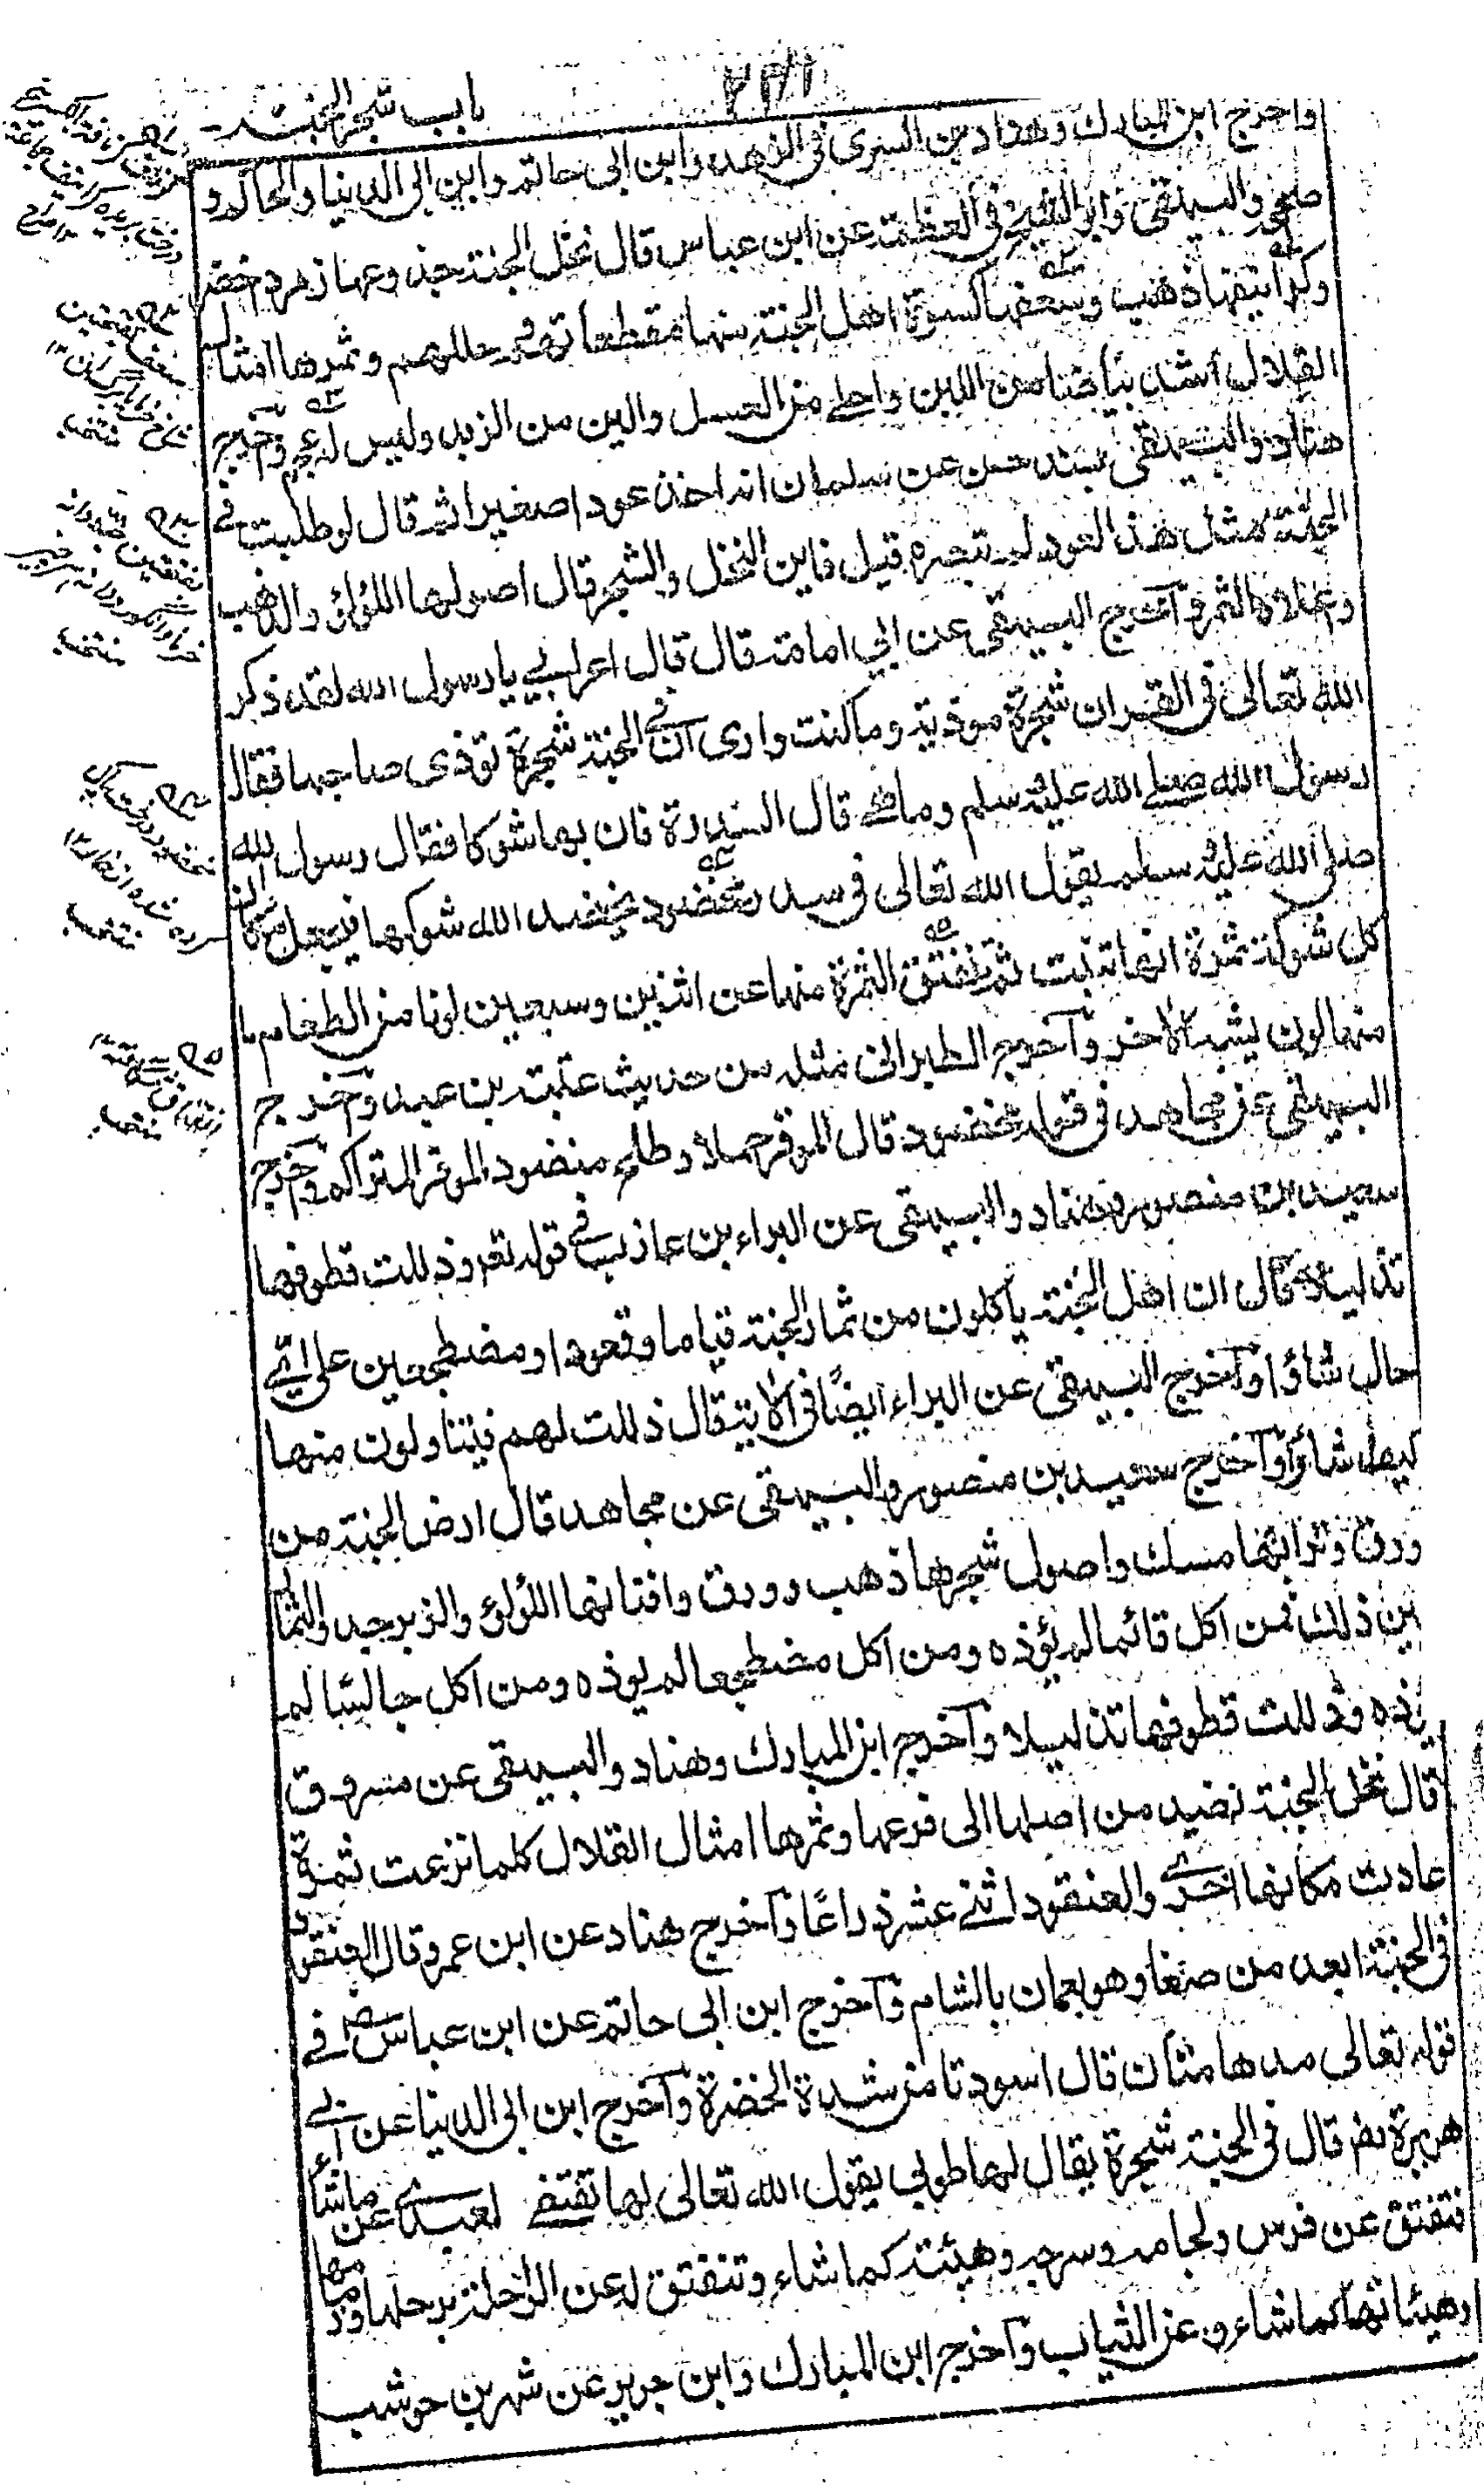 باب شجر الجنة
واخرج ابن المبارك وهناد بن السرى فى الزهد وابن ابى حاتم وابن ابى الدنيا والحاكم و
صححه والبيهقى وابو الشيخ فى العظمة عن ابن عباس قال نخل الجنة جذوعها زمرد اخضر
وكرانيفها ذهب وسعفها كسوة اهل الجنة منها مقطعاتهم وحللهم وثمرها امثال
القلال اشد بياضا من اللبن واحلى من العسل والين من الزبد وليس له عجم واخرج
هناد والبيهقى بسند حسن عن سلمان انه اخذ عودا صغيرا ثم قال لو طلبت فى
الجنة مثل هذا العود لم تبصره قيل فاين النخل والشجر قال اصولها اللؤلؤ والذهب
وعلاه الثمر واخرج البيهقى عن ابى امامة قال قال اعرابى يا رسول الله لقد ذكر
الله تعالى فى القران شجرة موذية وما كنت وارى ان فى الجنة شجرة توذى صاحبها فقال
رسول الله صلى الله عليه وسلم وما هى قال السدرة فان بها شوكا فقال رسول الله
صلى الله عليه وسلم يقول الله تعالى فى سدر مخضود يخضد الله شوكها فيجعل مكان
كل شوكة ثمرة انها تنبت ثمر تفتق الثمرة منها عن اثنين وسبعين لونا من الطعام ما
منها لون يشبه الاخر واخرج الطبرانى مثله من حديث عتبة بن عبد واخرج
البيهقى عن مجاهد فى قوله مخضود قال الموقر حملا وطلح منضود الموقر المتراكم واخرج
سعيد بن منصور وهناد والبيهقى عن البراء بن عازب فى قوله تعم وذللت قطوفها
تذليلا قال ان اهل الجنة ياكلون من ثمار الجنة قياما وقعودا ومضطجعين على اى
حال شاؤا واخرج البيهقى عن البراء ايضًا فى الاية قال ذللت لهم فيتناولون منها
كيف شاؤا واخرج سعيد بن منصور والبيهقى عن مجاهد قال ارض الجنة من
ورق وترابها مسك واصول شجرها ذهب وورق وافنانها اللؤلؤ والزبرجد والثمار
بين ذلك فمن اكل قائما لم يؤذه ومن اكل مضطجعا لم يوذه ومن اكل جالسا لم
يوذه وذللت قطوفها تذليلا واخرج ابن المبارك وهناد والبيهقى عن مسروق
قال نخل الجنة نضيد من اصلها الى فرعها وثمرها امثال القلال كلما نزعت ثمرة
عادت مكانها اخرى والعنقود اثنى عشر ذراعًا واخرج هناد عن ابن عمرو قال العنقود
فى الجنة ابعد من صنعا وهو بعمان بالشام واخرج ابن ابى حاتم عن ابن عباس فى
قوله تعالى مدهامتان قال اسودتا من شدة الخضرة واخرج ابن ابى الدنيا عن ابى
هريرة رض قال فى الجنة شجرة يقال لها طوبى يقول الله تعالى لها تفتقى لعبدى عن ماشاء
فتفتق عن فرس ولجامه وسرجه وهيئته كما شاء وتنفتق له عن الراحلة برحلها وزمامها
وهيئاتها كما شاء وعن الثياب واخرج ابن المبارك وابن جرير عن شهر بن حوشب